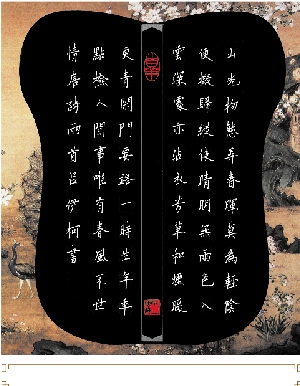 山光物態弄春暉莫為輕陰
便擬歸縱使晴明無雨色入
雲深處亦沾衣芳草和煙暖
更青閒門要路一時生年年
點檢人間事唯有春風不世
情唐詩兩首呂柯書